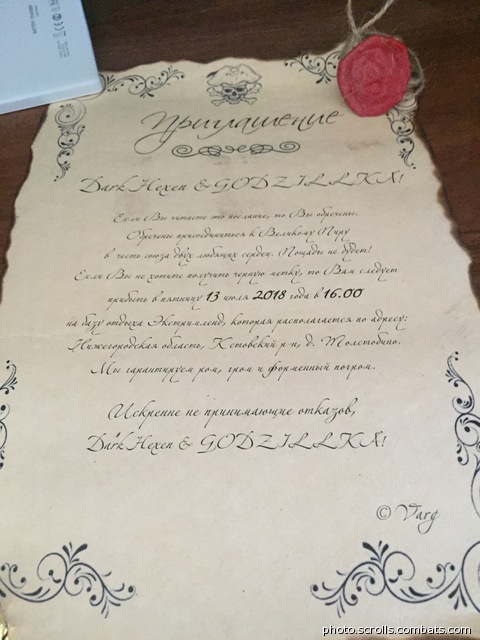 Приглашение
Dark Hexen & GODZILLKA!
Если Вы читаете это послание, то Вы обречены.
Обречены присоединиться к Великому Пиру
в честь союза двух любящих сердец. Пощады не будет!
Если Вы не хотите получить черную метку, то Вам следует
прибыть в пятницу 13 июля 2018 года в 16.00
на базу отдыха Экстримлэнд, которая располагается по адресу:
Нижегородская область, Кстовский р-н, д. Толстобино.
Мы гарантируем ром, гром и форменный погром.
Искренне не принимающие отказов,
Dark Hexen & GODZILLKA!
© Varg
photo.scrolls.combats.com